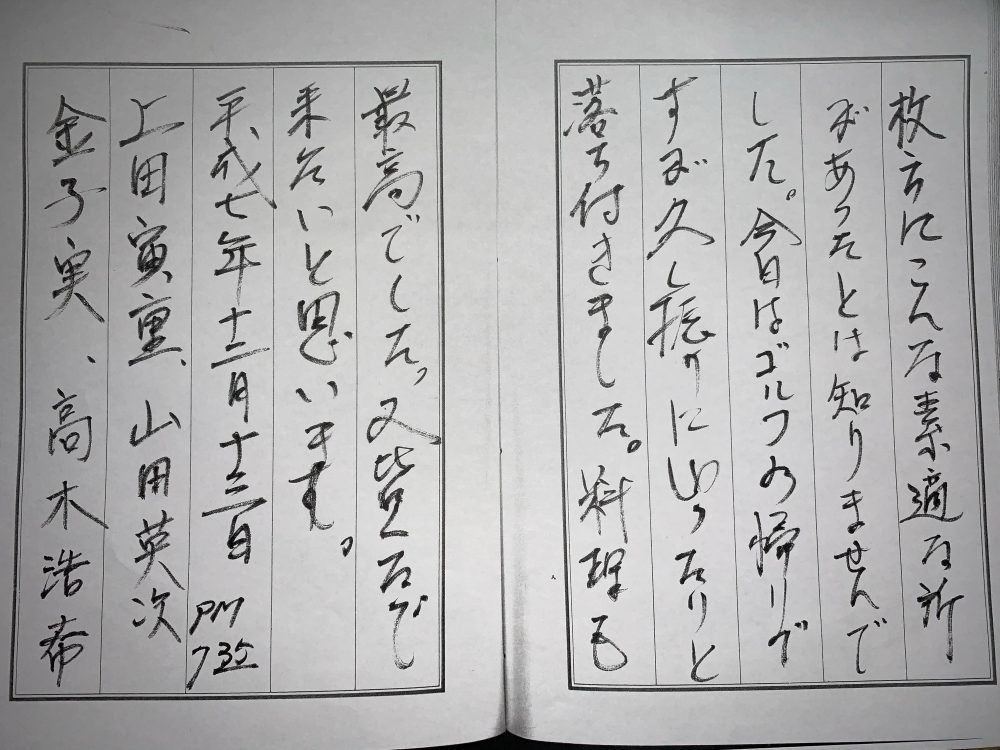 枚方にこんな素適な所
があったとは知りませんで
した。今日はゴルフの帰りで
すが久し振りにゆったりと
落ち付きました。料理も
最高でした。又皆なで
来たいと思います。
平成七年十二月十三日 PM 7 35
上田寅重、山田英次
金子実、高木浩希